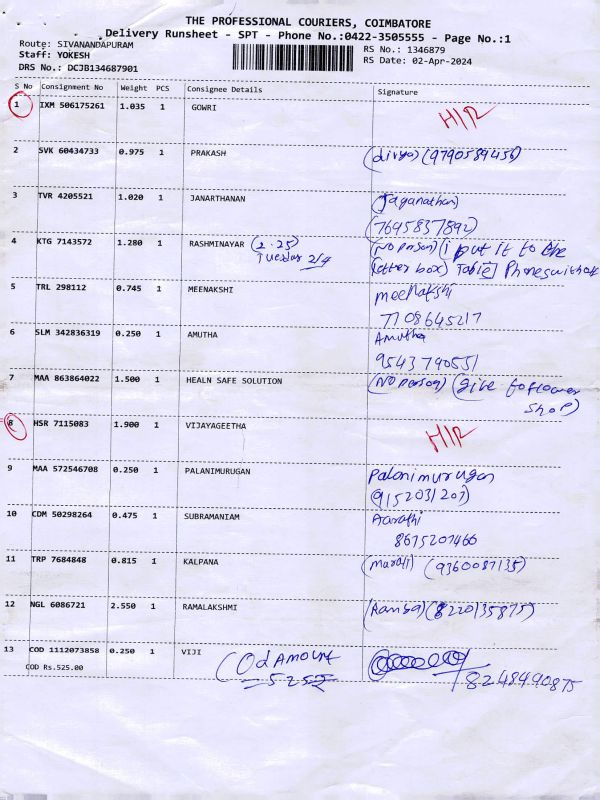 THE PROFESSIONAL COURIERS, COIMBATORE
Delivery Runsheet - SPT - Phone No.:0422-3505555 - Page No.:1
Route: SIVANANDAPURAM
RS No.: 1346879
Staff: YOKESH
RS Date: 02-Apr-2024
DRS No.: DCJB134687901
S No Consignment No Weight PCS Consignee Details Signature
1 IXM 506175261 1.035 1 GOWRI H/R
2 SVK 60434733 0.975 1 PRAKASH (divya) (9790589456)
3 TVR 4205521 1.020 1 JANARTHANAN (Jaganathan)
(7695837892)
4 KTG 7143572 1.280 1 RASHMINAYAR (2.25) (No person) (I put it to the
Tuesday 2/4 letter box) Table]
5 TRL 298112 0.745 1 MEENAKSHI meenakshi
7708645217
6 SLM 342836319 0.250 1 AMUTHA Amutha
9543790551
7 MAA 863864022 1.500 1 HEALN SAFE SOLUTION (No person) (give to flower
shop)
8 HSR 7115083 1.900 1 VIJAYAGEETHA H/R
9 MAA 572546708 0.250 1 PALANIMURUGAN Palanimurugan
(9152031207)
10 CDM 50298264 0.475 1 SUBRAMANIAM Aarathi
8675207466
11 TRP 7684848 0.815 1 KALPANA (murali) (9360087135)
12 NGL 6086721 2.550 1 RAMALAKSHMI (8220135875)
13 COD 1112073858 0.250 1 VIJI COd AMOUNT
COD Rs.525.00 8248490875